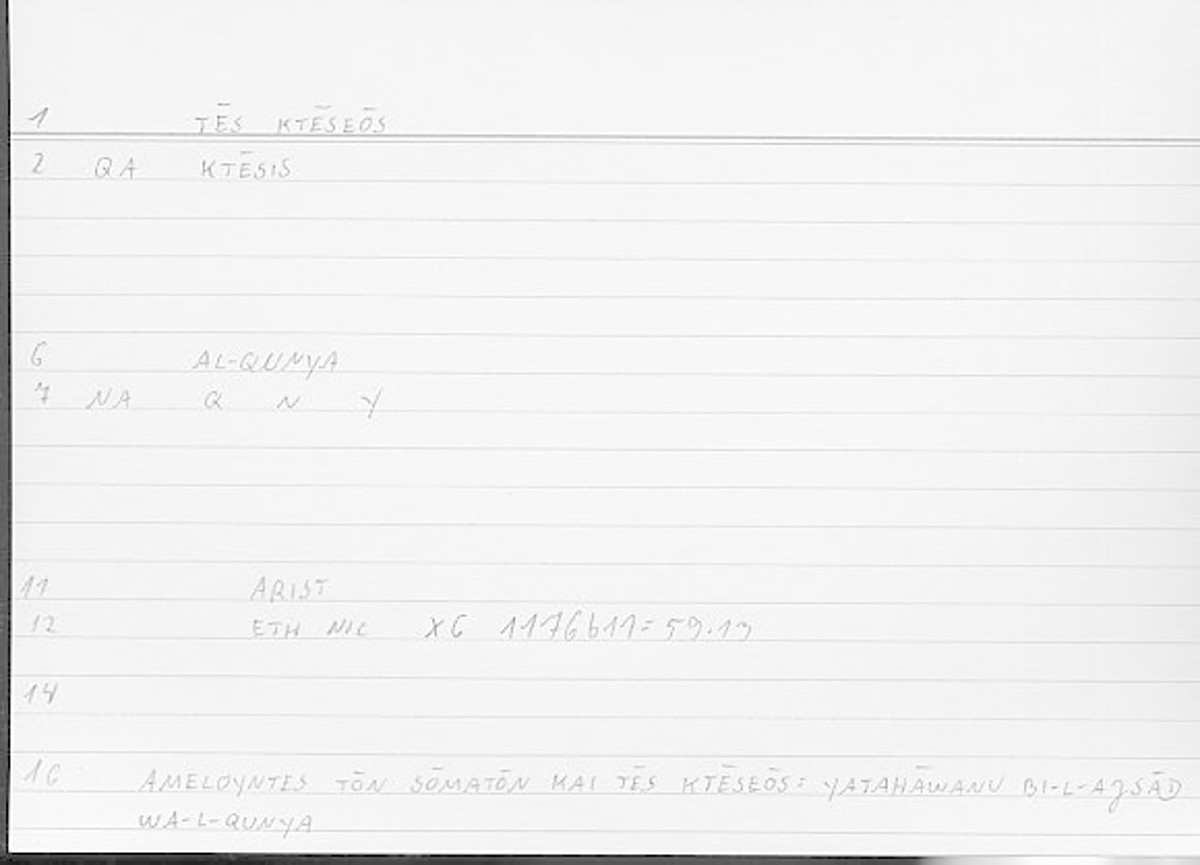 1 TĒS KTĒSEŌS
2 QA KTĒSIS
6 AL-QUNYA
7 NA Q N Y
11 ARIST
12 ETH NIC X6 1176b11=59.13
14
16 AMELOYNTES TŌN SŌMATŌN KAI TĒS KTĒSEŌS: YATAHĀWANU BI-L-AJSĀD
WA-L-QUNYA